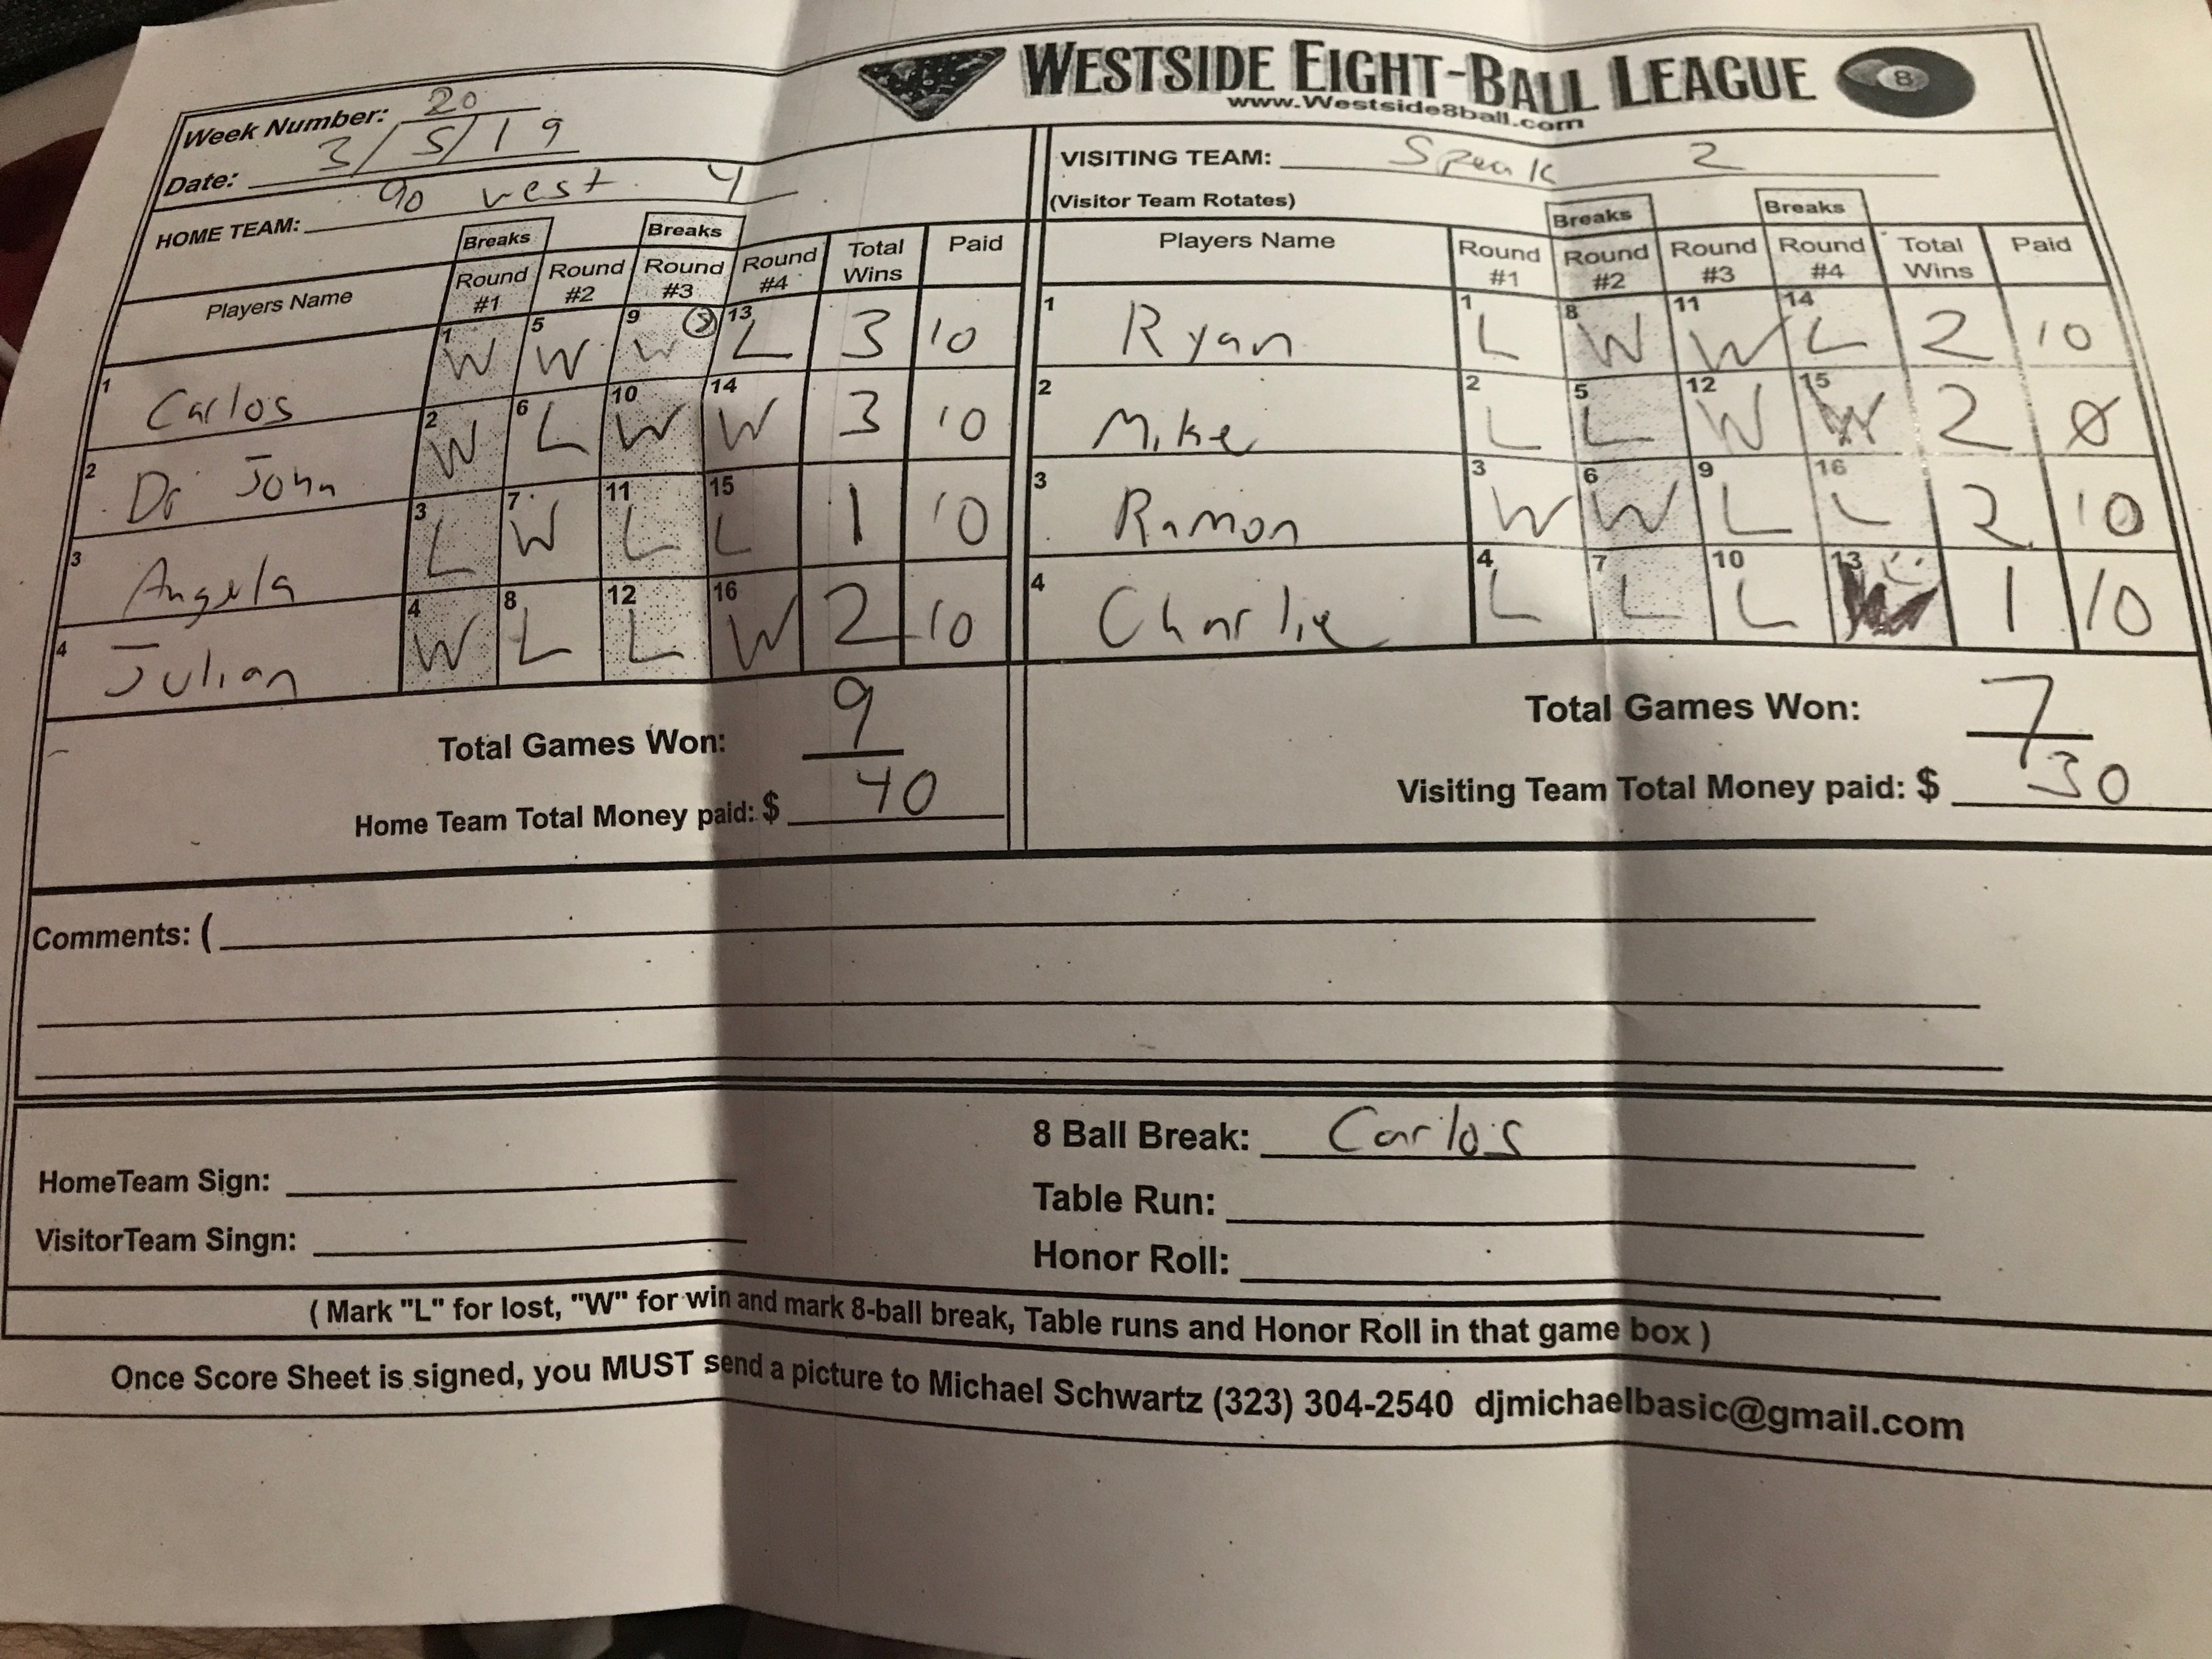 WESTSIDE EIGHT-BALL LEAGUE 8
www.Westside8ball.com
Week Number: 20
Date: 3/5/19
HOME TEAM: 90 west 4
Breaks Breaks
Players Name Round #1 Round #2 Round #3 Round #4 Total Wins Paid
1 Carlos 1 W 5 W 9 W 13 L 3 10
2 Dr John 2 W 6 L 10 W 14 W 3 10
3 Angela 3 L 7 W 11 L 15 L 1 10
4 Julian 4 W 8 L 12 L 16 W 2 10
Total Games Won: 9
Home Team Total Money paid: $ 40
VISITING TEAM: Speak 2
(Visitor Team Rotates)
Breaks Breaks
Players Name Round #1 Round #2 Round #3 Round #4 Total Wins Paid
1 Ryan 1 L 8 W 11 W 14 L 2 10
2 Mike 2 L 5 L 12 W 15 W 2 0
3 Ramon 3 W 6 W 9 L 16 L 2 10
4 Charlie 4 L 7 L 10 L 13 W 1 10
Total Games Won: 7
Visiting Team Total Money paid: $ 30
Comments: (
8 Ball Break: Carlos
HomeTeam Sign:
Table Run:
VisitorTeam Singn:
Honor Roll:
( Mark "L" for lost, "W" for win and mark 8-ball break, Table runs and Honor Roll in that game box )
Once Score Sheet is signed, you MUST send a picture to Michael Schwartz (323) 304-2540 djmichaelbasic@gmail.com